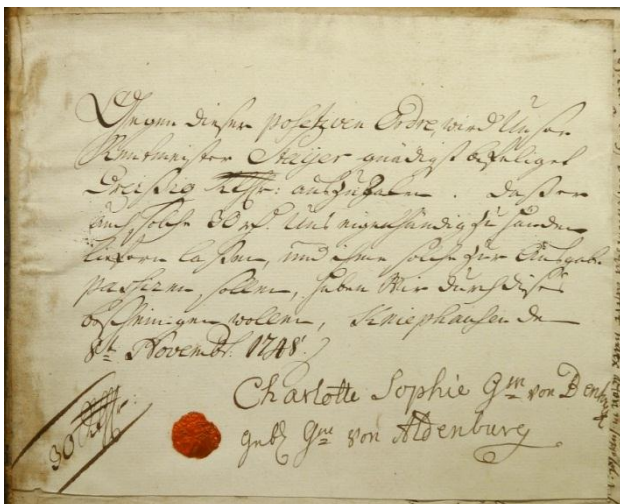 Gegen dieser positiven Ordre, wird Unser
Rentmeister Heijer gnädigst befeliget
Dreißig Rthr: auszuzalen. daß er
auch solche 30 rthl. Uns eigenhändig zu handen
liefern laßen, und ihme solche zur Ausgabe
passiren sollen, haben Wir durch dises
bescheinigen wollen, Kniephausen de
8t. Novembr. 1748.
Charlotte Sophie Gin von Bent
gebh Gin von Aldenburg
30 Rthr.